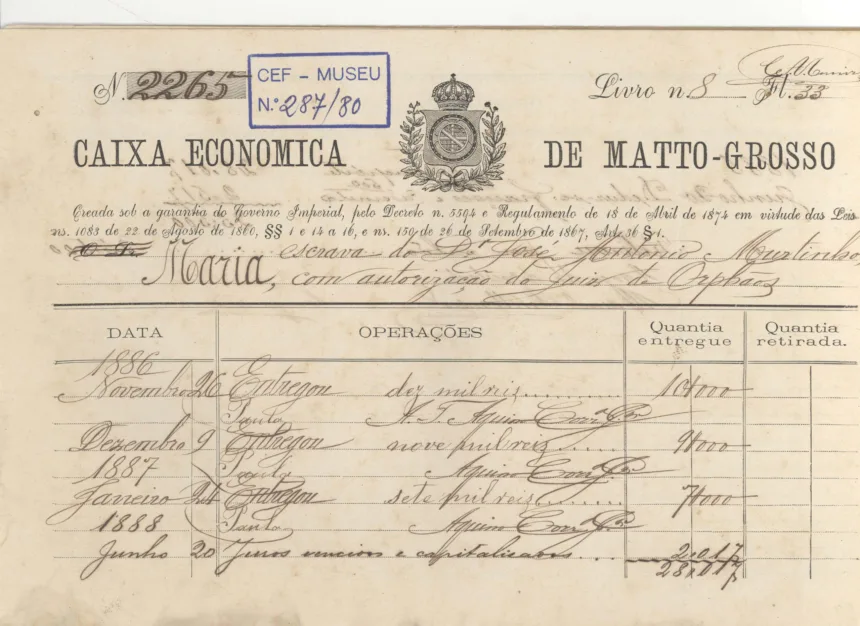 N. 2265
CEF - MUSEU
N.º 287/80
Livro n. 8 Fl. 33
CAIXA ECONOMICA DE MATTO-GROSSO
Creada sob a garantia do Governo Imperial, pelo Decreto n. 5594 e Regulamento de 18 de Abril de 1874 em virtude das Leis
ns. 1083 de 22 de Agosto de 1860, §§ 1 e 14 a 16, e ns. 150 de 26 de Setembro de 1867, Art. 36 § 1.
escrava do Dr. José Antonio Murtinho,
Maria, com autorização do Juiz de Orphãos
DATA OPERAÇÕES Quantia entregue Quantia retirada.
1886
Novembro 26 Entregou dez mil reis 10$000
Aquino Corrª
Dezembro 9 Entregou nove mil reis 9$000
1887 Aquino Corrª
Janeiro 24 Entregou sete mil reis 7$000
1888 Aquino Corrª
Junho 20 Juros vencidos e capitalisados 2.017
28$017